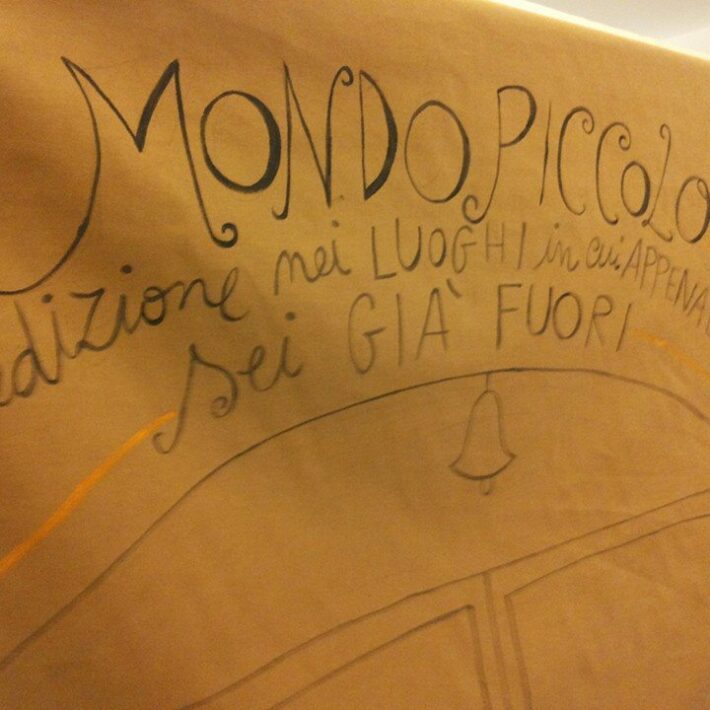 MONDO PICCOLO
edizione nei LUOGHI in cui APPENA
sei GIÀ FUORI